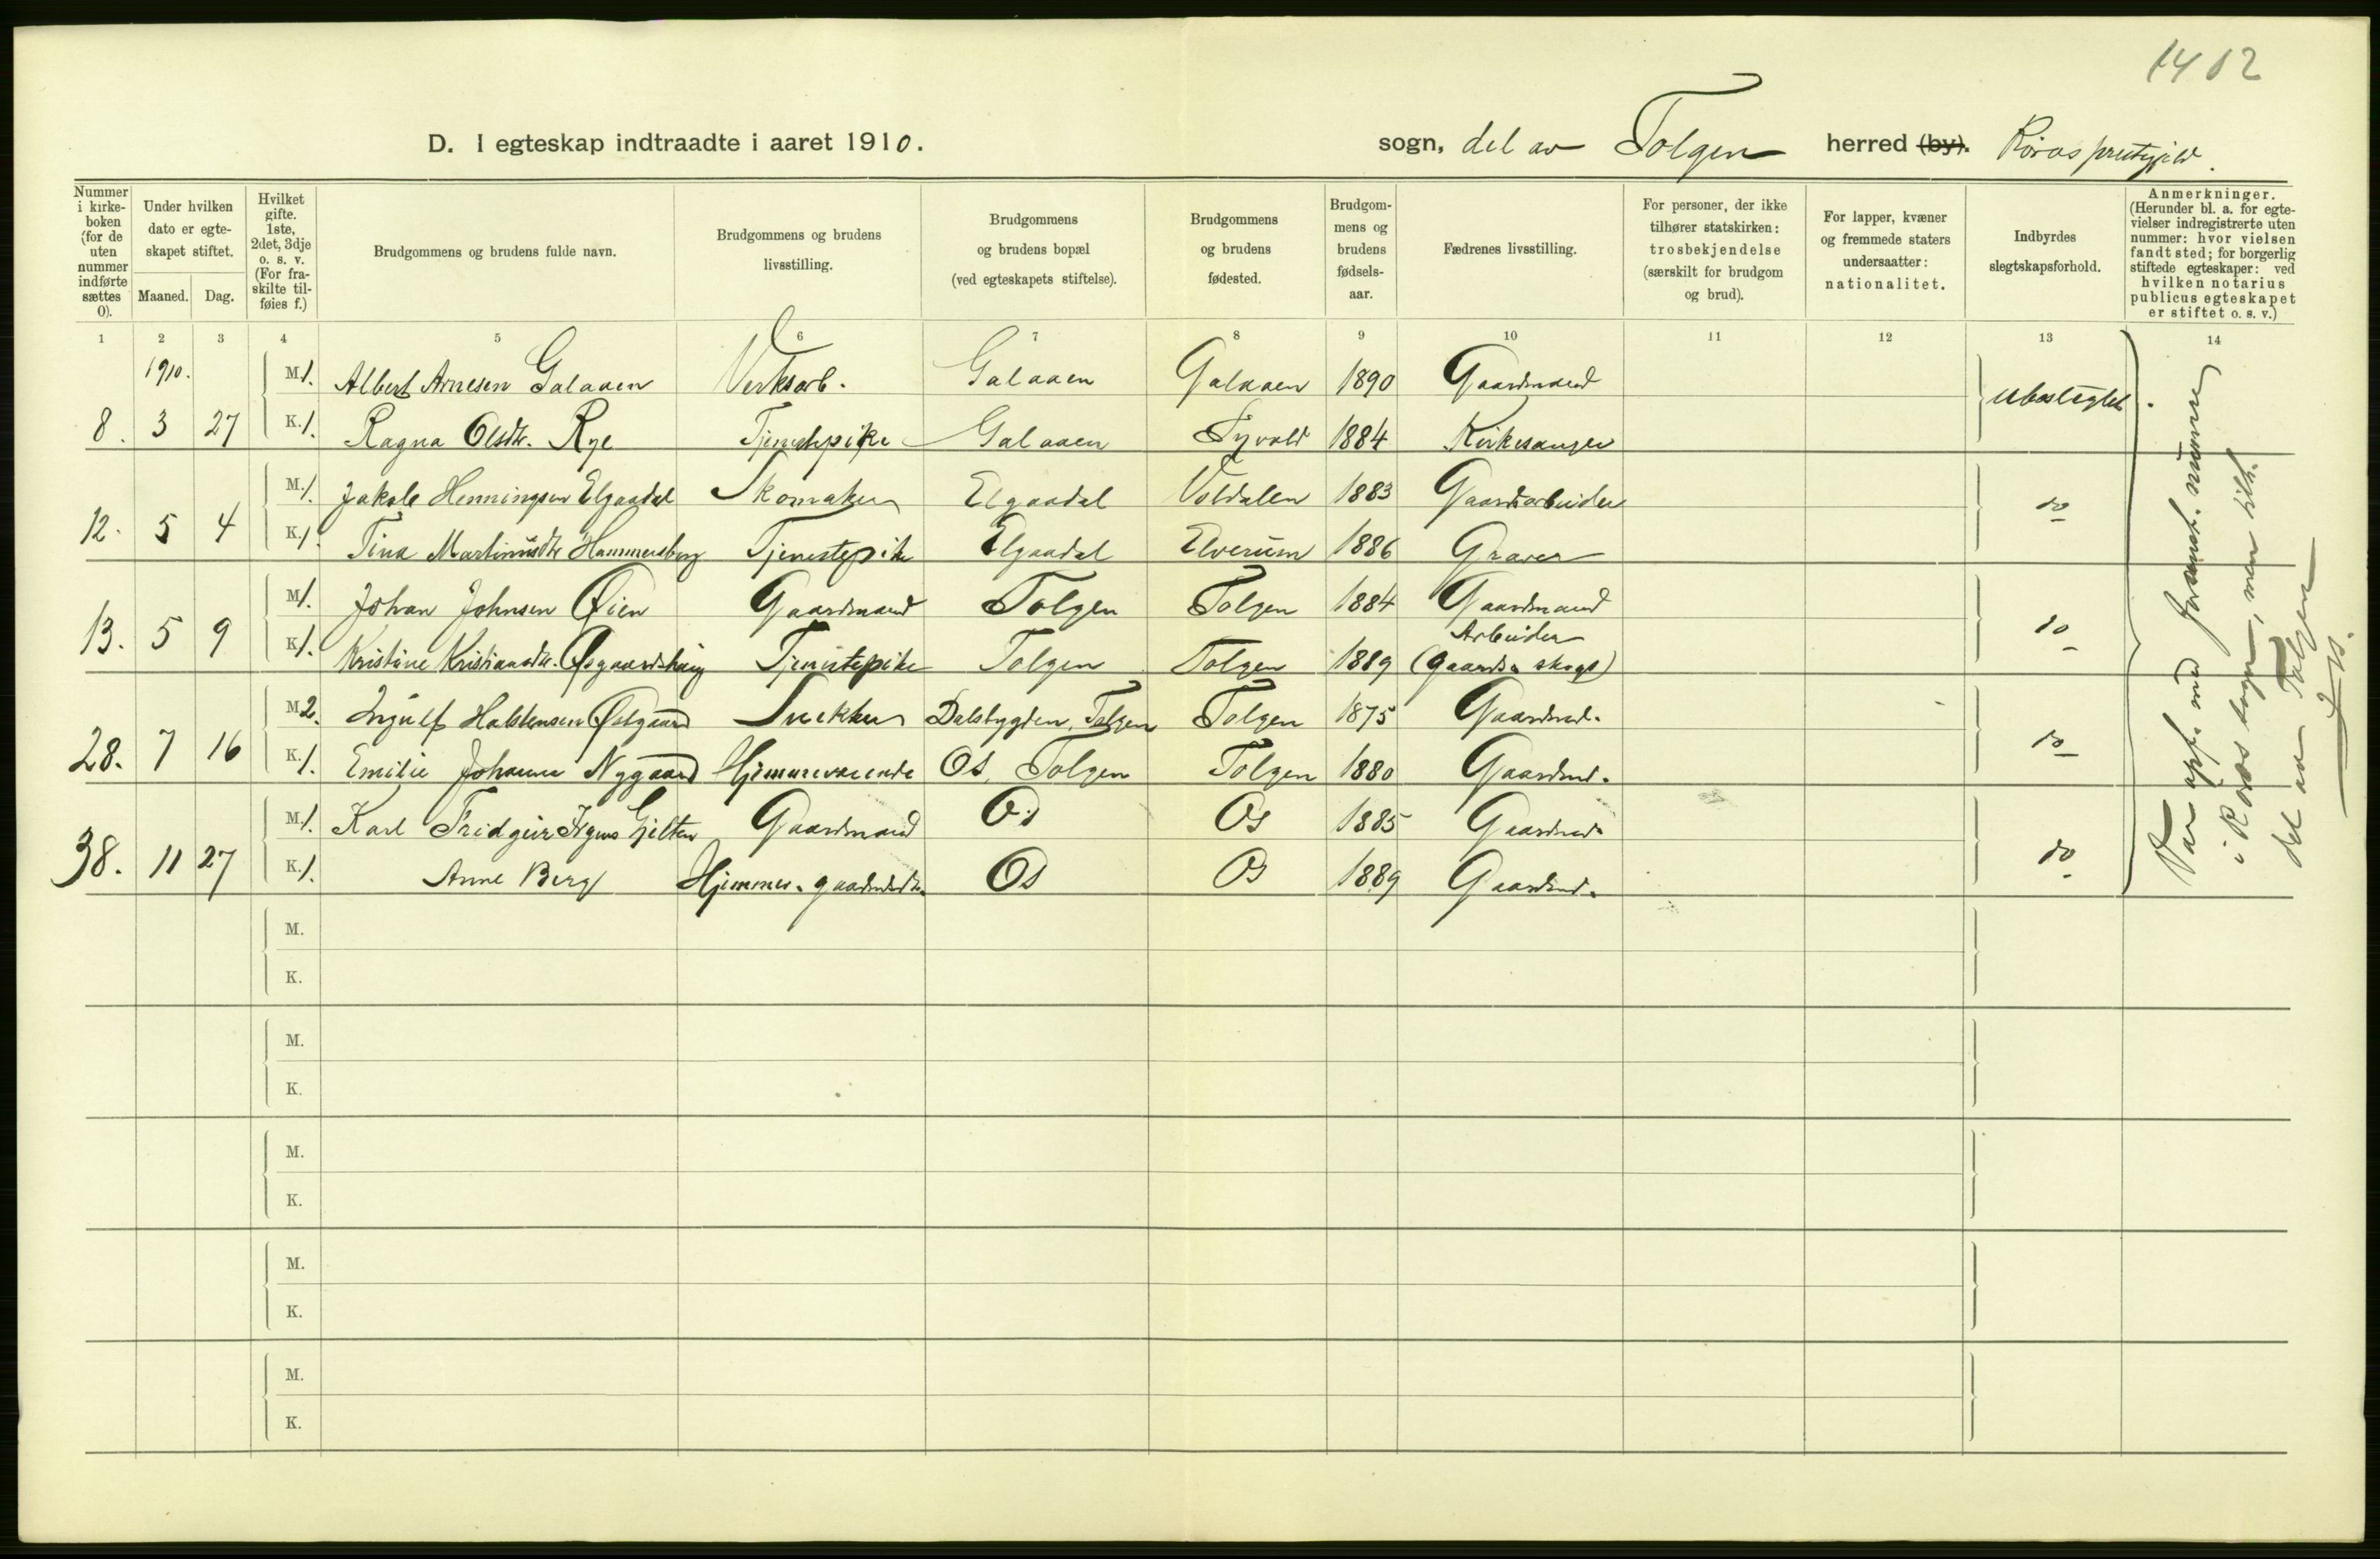 1412
D. I egteskap indtraadte i aaret 1910.
sogn, del av Tolgen herred (by). Røros prestegjeld.
Nummer i kirkeboken (for de uten nummer indførte sættes 0).
Under hvilken dato er egteskapet stiftet.
Maaned. Dag.
Hvilket gifte. 1ste, 2det, 3dje o. s. v. (For fraskilte tilføies f.)
Brudgommens og brudens fulde navn.
Brudgommens og brudens livsstilling.
Brudgommens og brudens bopæl (ved egteskapets stiftelse).
Brudgommens og brudens fødested.
Brudgommens og brudens fødselsaar.
Fædrenes livsstilling.
For personer, der ikke tilhører statskirken: trosbekjendelse (særskilt for brudgom og brud).
For lapper, kvæner og fremmede staters undersaatter: nationalitet.
Indbyrdes slegtskapsforhold.
Anmerkninger. (Herunder bl. a. for egtevielser indregistrerte uten nummer: hvor vielsen fandt sted; for borgerlig stiftede egteskaper: ved hvilken notarius publicus egteskapet er stiftet o. s. v.)
1 2 3 4 5 6 7 8 9 10 11 12 13 14
1910. M. 1. Albert Arnesen Galaaen Verksarb. Galaaen Galaaen 1890 Gaardmand ubeslegtet.
8. 3 27 K. 1. Ragna Olsdtr. Rye Tjenestepike Galaaen 1884 Kirkesanger
M. 1. Jakob Henningsen Elgaadal Skomaker Elgaadal Voldalen 1883 Gaardarbeider do
12. 5 4 K. 1. Tina Martinusdtr Hammersberg Tjenestepike Elgaadal Elverum 1886 Graver
M. 1. Johan Johnsen Øien Gaardmand Tolgen Tolgen 1884 Gaardmand do
13. 5 9 K. 1. Kristine Kristiansdtr. Øsgaardshaug Tjenestepike Tolgen Tolgen 1889 Arbeider (Gaards & skogs)
M. 2. Ingulf Halstensen Østgaard Snekker Dalsbygden, Tolgen Tolgen 1875 Gaardmd. do
28. 7 16 K. 1. Emilie Johanne Nygaard Hjemmeværende Os, Tolgen Tolgen 1880 Gaardmd.
M. 1. Karl Fridgeir Gjelten Gaardmand Os Os 1885 Gaardmd. do
38. 11 27 K. 1. Anne Berg Hjemmev. gaardmdsdtr. Os Os 1889 Gaardmd.
Var opf. med nummer
i Røros sogn, men tilh.
del av Tolgen
M.
K.
M.
K.
M.
K.
M.
K.
M.
K.